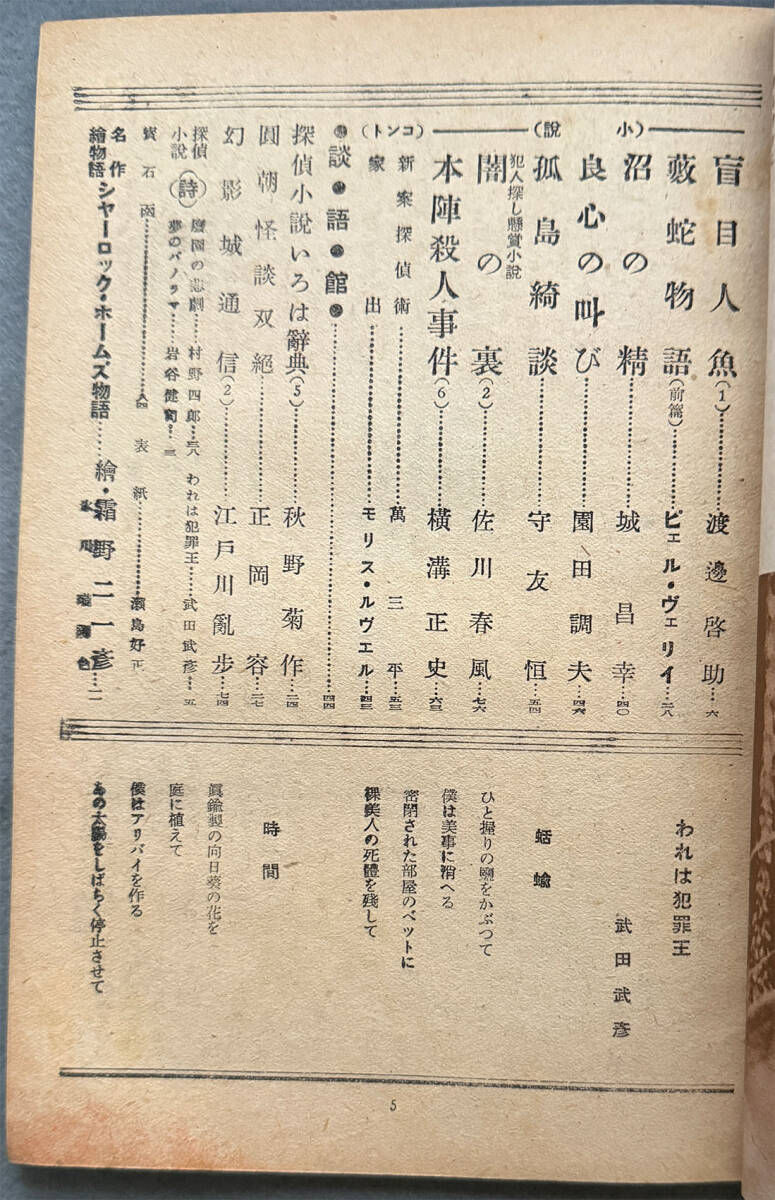 (小說)
盲目人魚(1)……渡邊啓助…六
藪蛇物語(前篇)……ピエル・ヴェリイ…二八
沼の精……城昌幸…四〇
良心の叫び……園田調夫…四六
孤島綺談……守友恒…五四
犯人探し懸賞小說
闇の裏(2)……佐川春風…七六
本陣殺人事件(6)……橫溝正史…六三
(コント)
新案探偵術……萬三平…五三
家出……モリス・ルヴエル…四三
談・語・館……四四
探偵小說いろは辭典(5)……秋野菊作…二四
圓朝怪談双絕……正岡容…二七
幻影城通信(2)……江戶川亂步…七四
探偵小說
詩
の悲劇……村野四郎…三八
われは犯罪王……武田武彥…五
夢のパノラマ……岩谷健司…三
寶石函……
表紙……瀨島好正
名作繪物語
シャーロック・ホームズ物語……繪・霜野二一彥…二
われは犯罪王
武田武彥
蛞蝓
ひと握りの鹽をかぶつて
僕は美事に消へる
密閉された部屋のベットに
裸美人の死體を殘して
時間
眞鍮製の向日葵の花を
庭に植えて
僕はアリバイを作る
あの太陽をしばらく停止させて
5